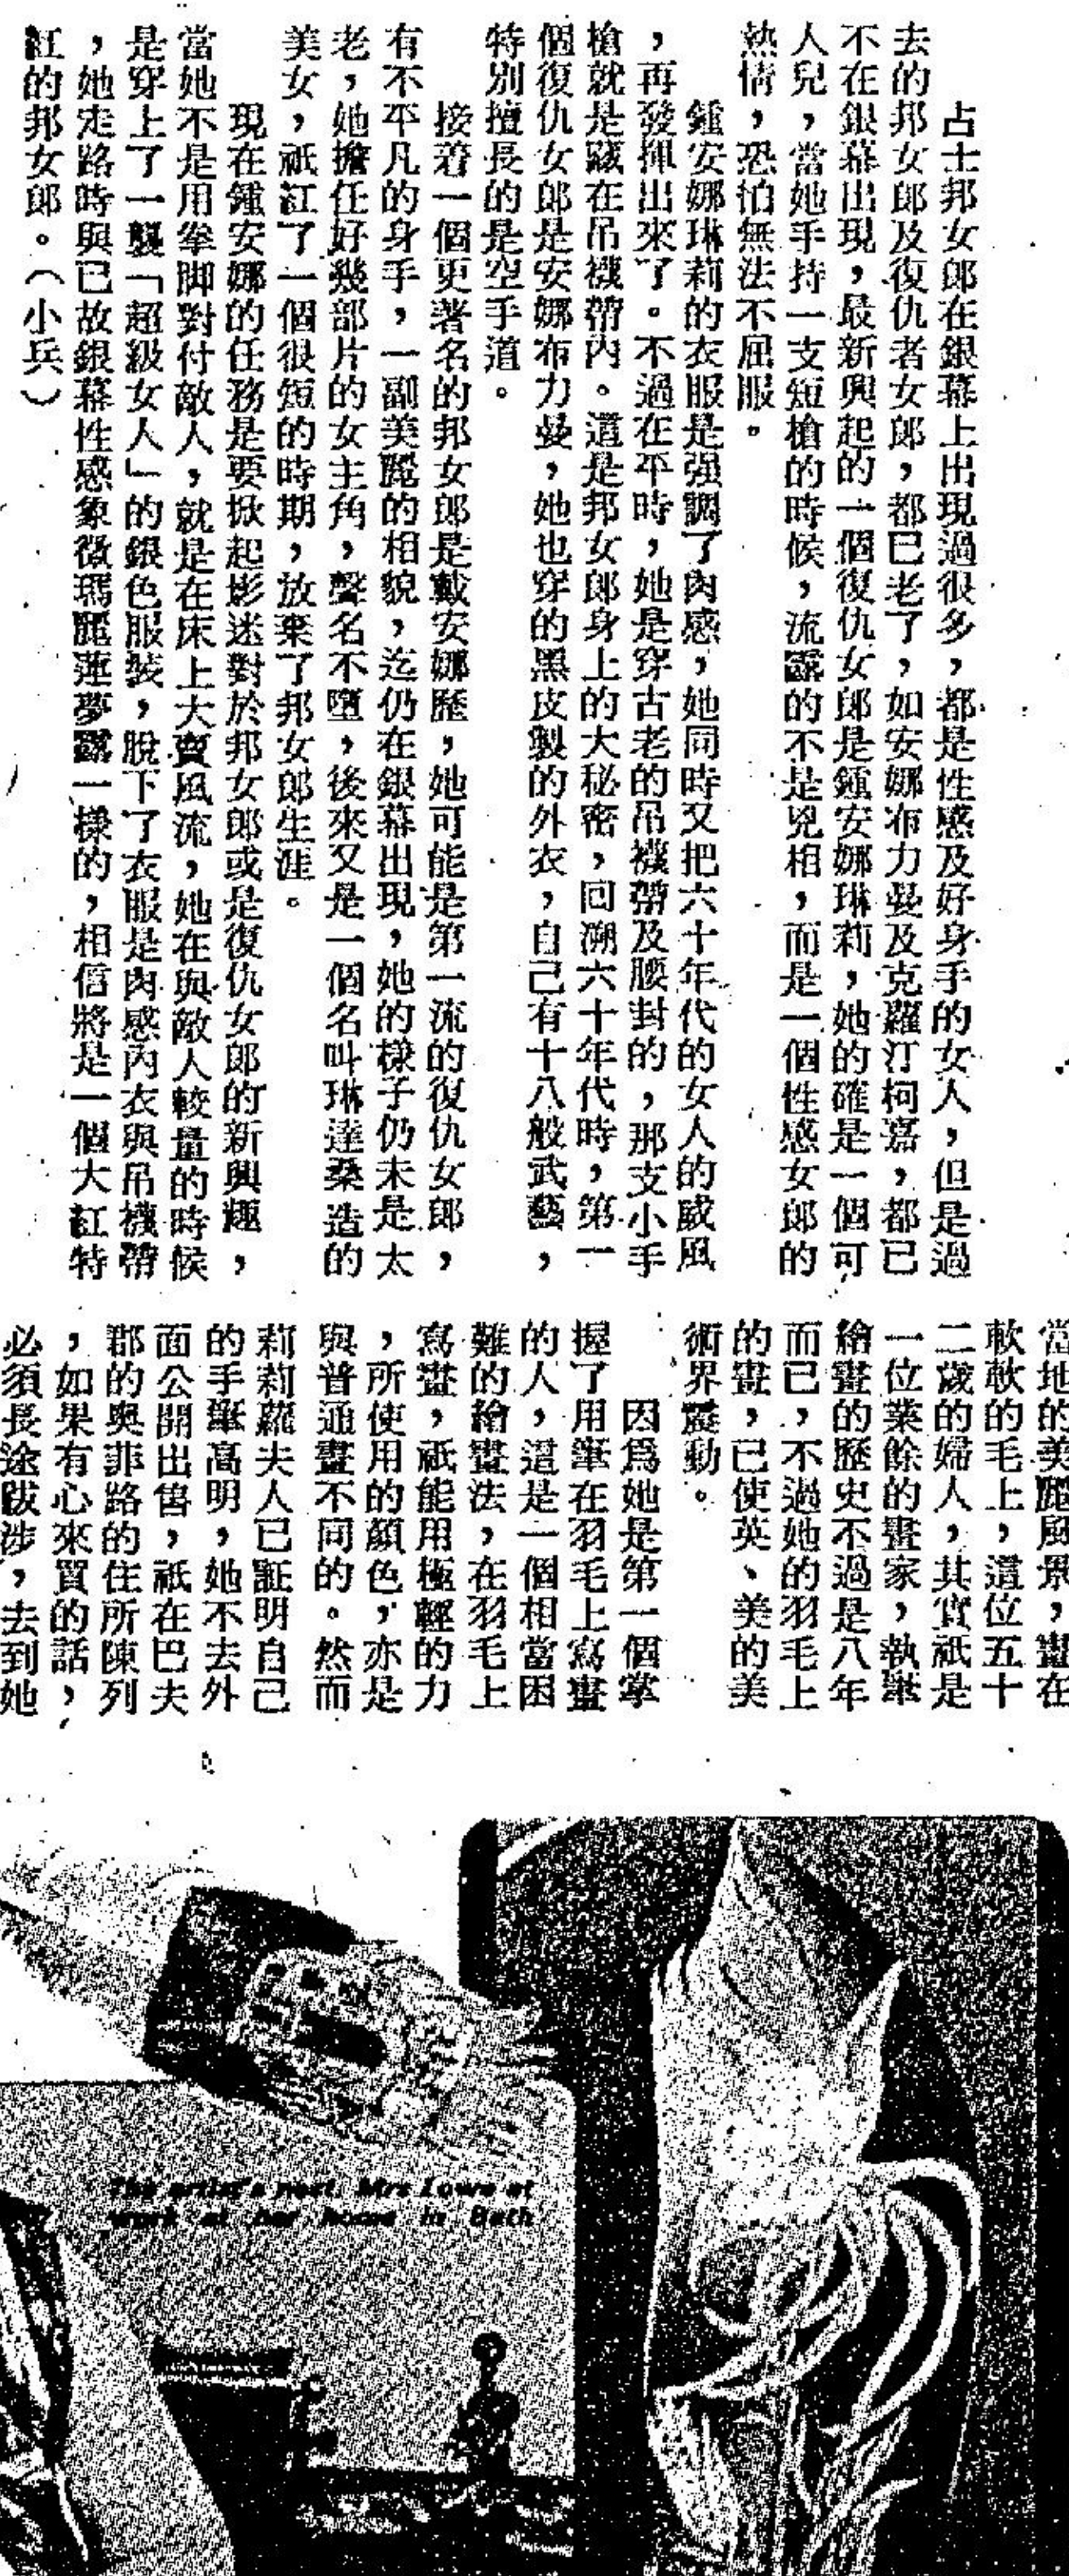 占士邦女郎在銀幕上出現過很多，都是性感及好身手的女人，但是過
去的邦女郎及復仇者女郎，都已老了，如安娜布力曼及克蘿汀柯嘉，都已
不在銀幕出現，最新興起的一個復仇女郎是鍾安娜琳莉，她的確是一個可
人兒，當她手持一支短槍的時候，流露的不是兇相，而是一個性感女郎的
熱情，恐怕無法不屈服。
鍾安娜琳莉的衣服是强調了肉感，她同時又把六十年代的女人的威風
，再發揮出來了。不過在平時，她是穿古老的吊襪帶及腰封的，那支小手
槍就是藏在吊襪帶內。這是邦女郎身上的大秘密，回溯六十年代時，第一
個復仇女郎是安娜布力曼，她也穿的黑皮製的外衣，自己有十八般武藝，
特別擅長的是空手道。
接着一個更著名的邦女郎是戴安娜歷，她可能是第一流的復仇女郎，
有不平凡的身手，一副美麗的相貌，迄仍在銀幕出現，她的樣子仍未是太
老，她擔任好幾部片的女主角，聲名不墮，後來又是一個名叫琳達桑造的
美女，祇紅了一個很短的時期，放棄了邦女郎生涯。
現在鍾安娜的任務是要掀起影迷對於邦女郎或是復仇女郎的新興趣，
當她不是用拳脚對付敵人，就是在床上大賣風流，她在與敵人較量的時候
是穿上了一襲「超級女人」的銀色服裝，脫下了衣服是肉感內衣與吊襪帶
，她走路時與已故銀幕性感象徵瑪麗蓮夢露一樣的，相信將是一個大紅特
紅的邦女郎。（小兵）
當地的美麗風景，畫在
軟軟的毛上，這位五十
二歲的婦人，其實祇是
一位業餘的畫家，執筆
繪畫的歷史不過是八年
而已，不過她的羽毛上
的畫，已使英、美的美
術界震動。
因爲她是第一個掌
握了用筆在羽毛上寫畫
的人，這是一個相當困
難的繪畫法，在羽毛上
寫畫，祇能用極輕的力
，所使用的顏色，亦是
與普通畫不同的。然而
莉莉蘿夫人已証明自己
的手筆高明，她不去外
面公開出售，祇在巴夫
郡的奥菲路的住所陳列
，如果有心來買的話，
必須長途跋涉，去到她
The artist's nest. Mrs Lowe at
work at her home in Bath